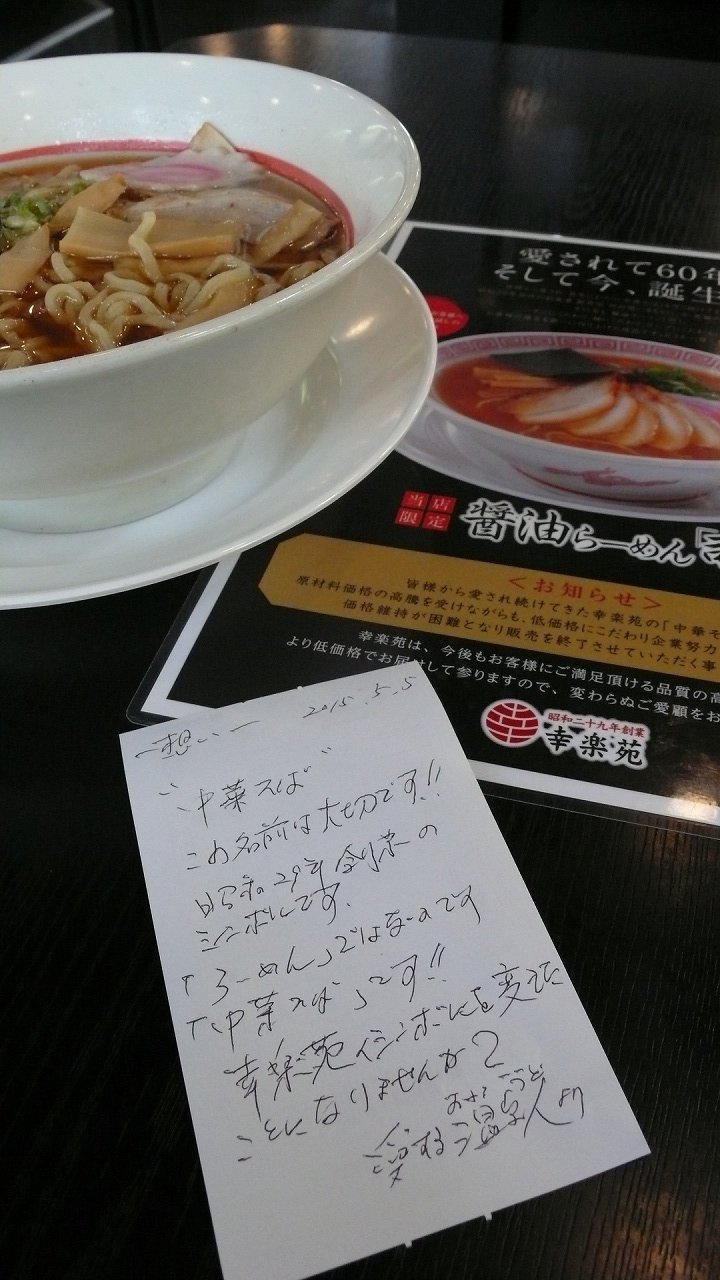 愛されて60年
そして今、誕生
当店
限定
醤油らーめん
＜お知らせ＞
皆様から愛され続けてきた幸楽苑の「中華そ
原材料価格の高騰を受けながらも、低価格にこだわり企業努力
価格維持が困難となり販売を終了させていただく事
幸楽苑は、今後もお客様にご満足頂ける品質の高
より低価格でお届けして参りますので、変わらぬご愛顧をお
昭和二十九年創業
幸楽苑
2015.5.5
〃中華そば〃
この名前は大切です!!
昭和29年創業の
シンボルです.
「らーめん」ではないのです
「中華そば」です!!
幸楽苑イシンボルを変えた
ことになりませんか?
愛する
より